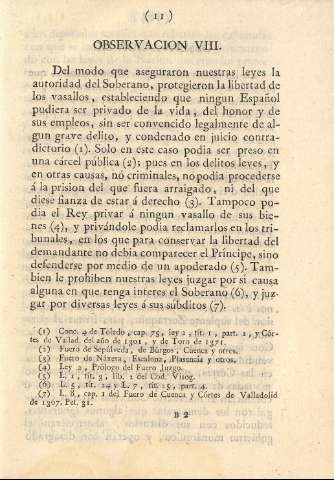 ( 11 )
OBSERVACION VIII.
Del modo que aseguraron nuestras leyes la
autoridad del Soberano, protegieron la libertad de
los vasallos, estableciendo que ningun Español
pudiera ser privado de la vida, del honor y de
sus empleos, sin ser convencido legalmente de al-
gun grave delito, y condenado en juicio contra-
dictorio (1). Solo en este caso podia ser preso en
una cárcel pública (2): pues en los delitos leves, y
en otras causas, nó criminales, no podia procederse
á la prision del que fuera arraigado, ni del que
diese fianza de estar á derecho (3). Tampoco po-
dia el Rey privar á ningun vasallo de sus bie-
nes (4), y privándole podia reclamarlos en los tri-
bunales, en los que para conservar la libertad del
demandante no debia comparecer el Príncipe, sino
defenderse por medio de un apoderado (5). Tam-
bien le prohiben nuestras leyes juzgar por si causa
alguna en que tenga interes el Soberano (6), y juz-
gar por diversas leyes á sus súbditos (7).
(1) Conc. 4 de Toledo, cap. 75, ley 2, tít. 1, part. 2, y Cór-
tes de Vallad. del año de 1301, y de Toro de 1371.
(2) Fuero de Sepúlveda, de Búrgos, Cuenca y otros.
(3) Fuero de Náxera, Escalona, Plasencia y otros.
(4) Ley 2, Prólogo del Fuero Juzgo.
(5) L. 1, tít. 3, lib. 2 del Cod. Visog.
(6) L. 5, tít. 24 y L. 7, tít. 15, part. 4.
(7) L. 8, cap. 1 del Fuero de Cuenca y Córtes de Valladolid
de 1307. Pet. 31.
B 2